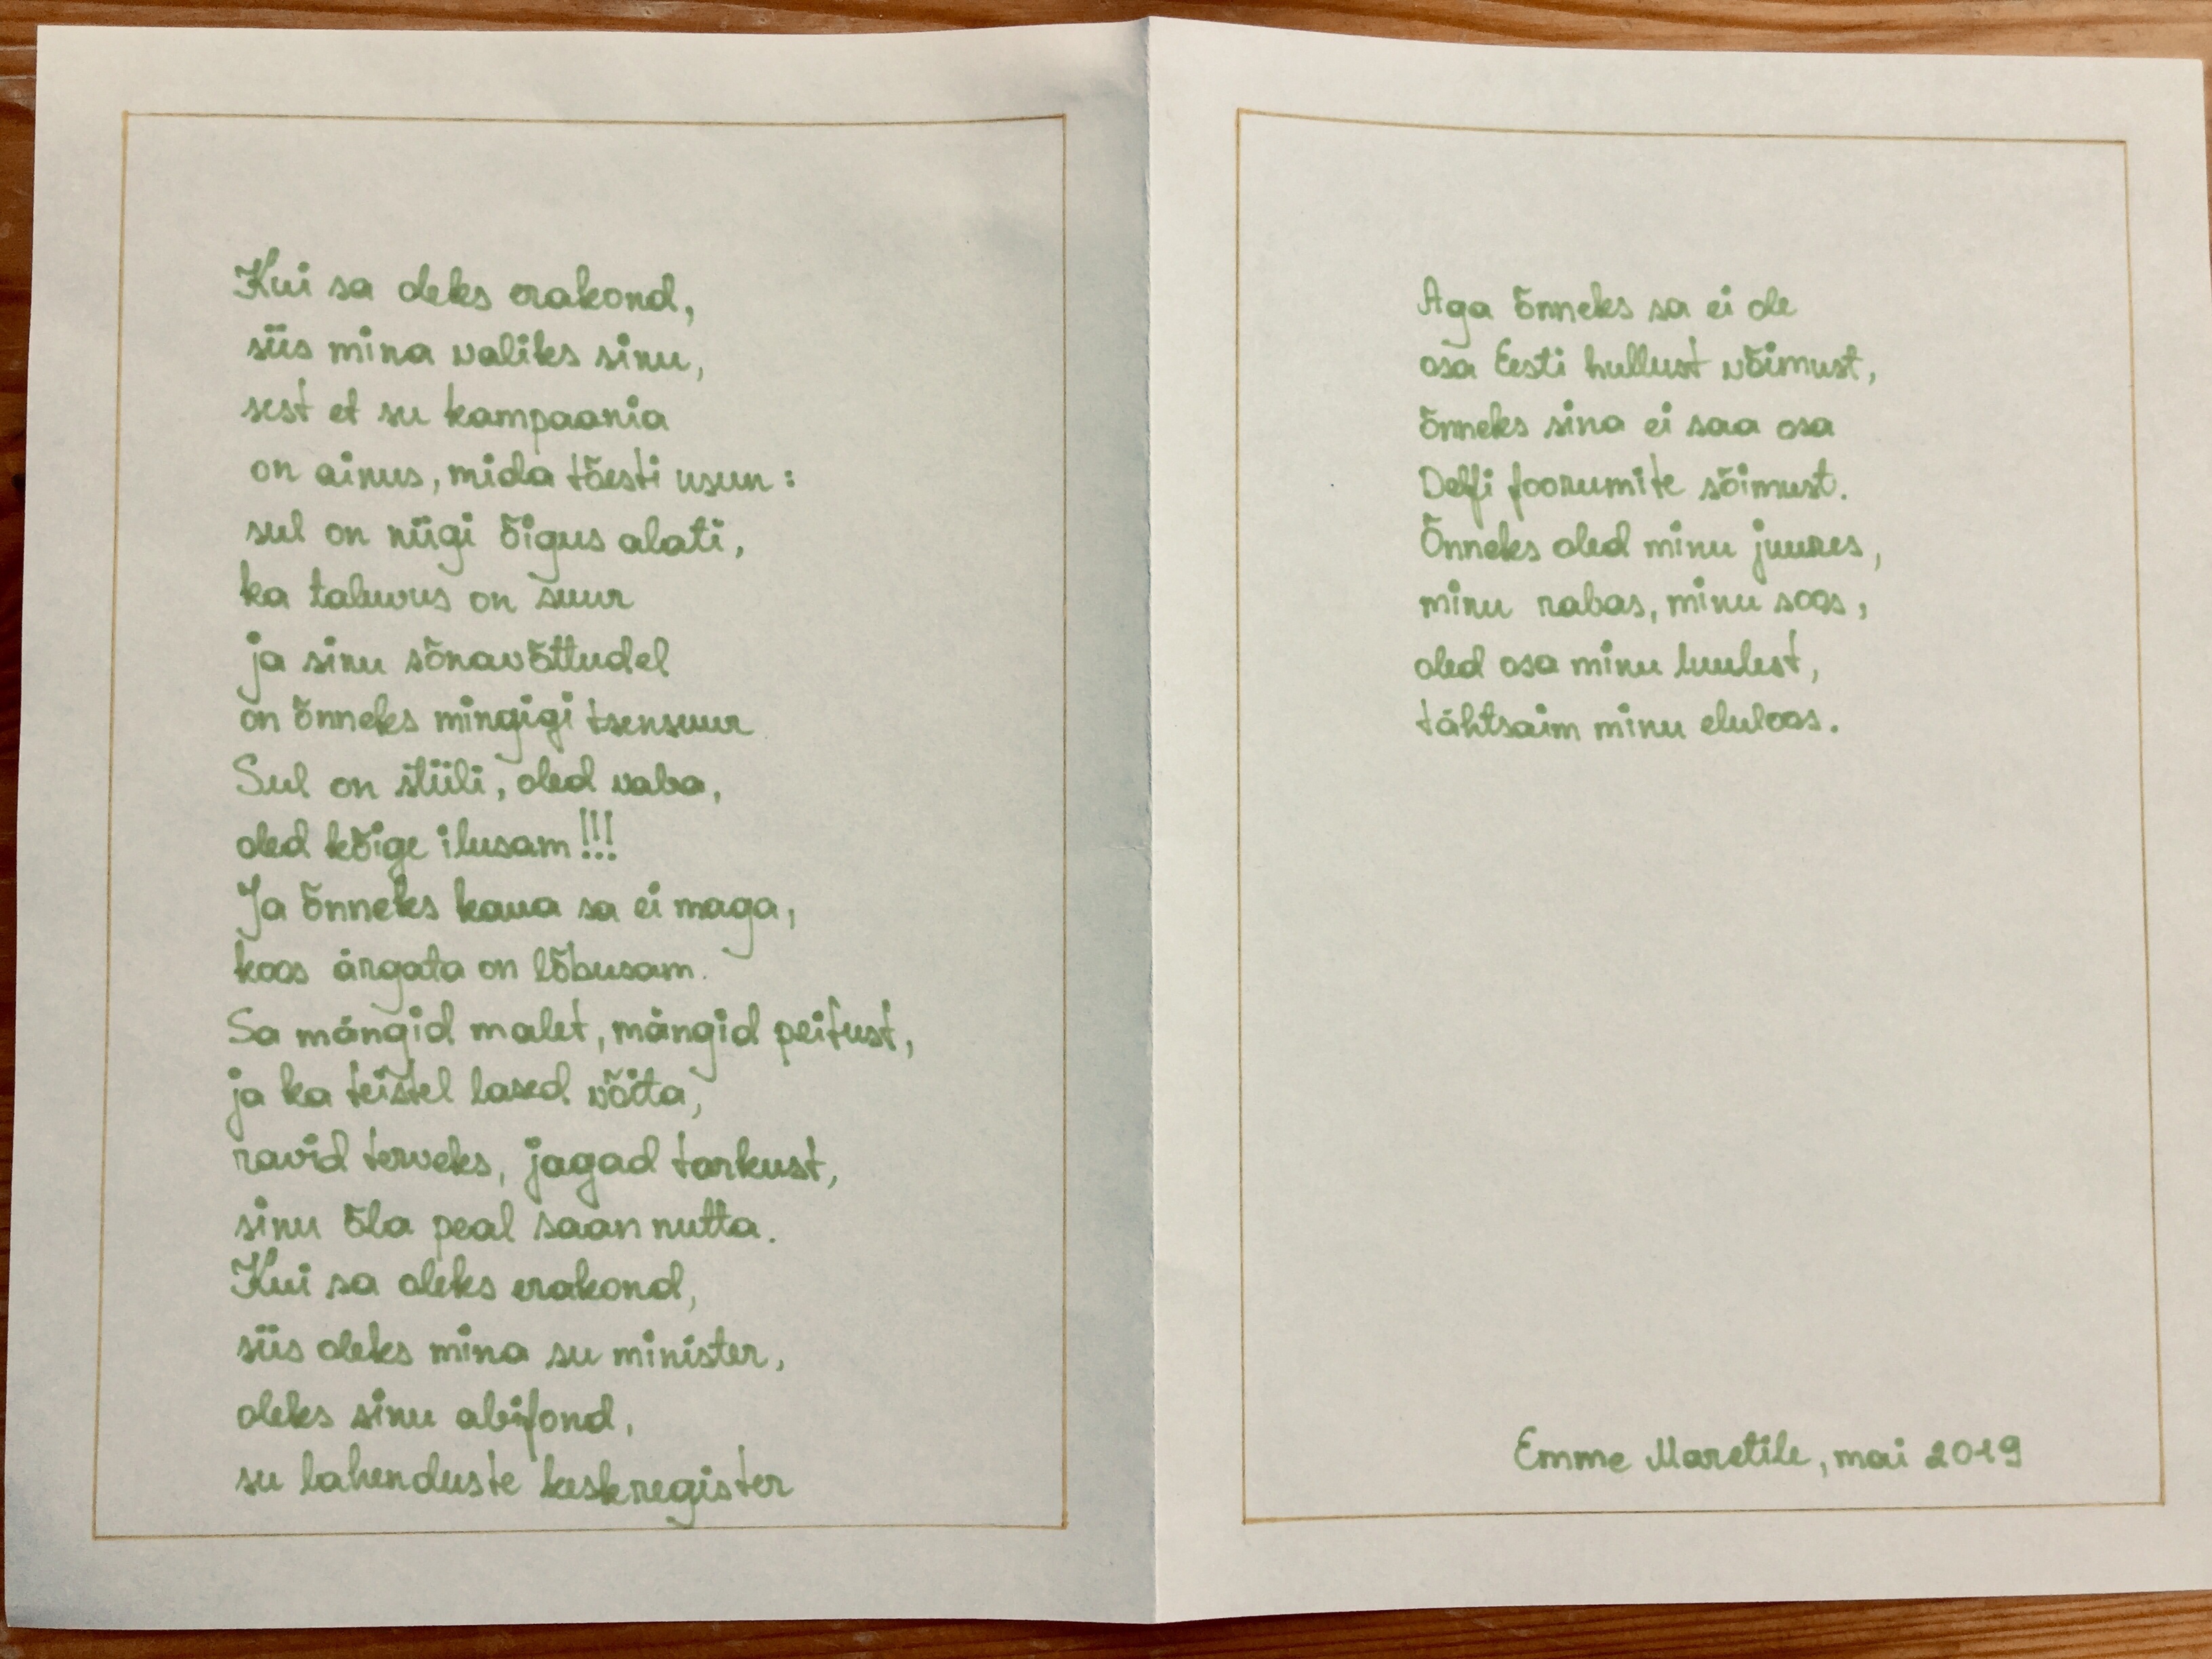 Kui sa oleks erakond,
siis mina valiks sinu,
sest et su kampaania
on ainus, mida tõesti usun:
sul on riigi õigus alati,
ka taluvus on suur
ja sinu sõnavõttudel
on õnneks mingigi tsensuur
Sul on stiili, oled vaba,
oled kõige ilusam!!!
Ja õnneks kaua sa ei maga,
koos ärgata on lõbusam.
Sa mängid malet, mängid peitust,
ja ka teistel lased võita,
ravid terveks, jagad tarkust,
sinu õla peal saan nutta.
Kui sa oleks erakond,
siis oleks mina su minister,
oleks sinu abifond,
su lahenduste keskregister
Aga õnneks sa ei ole
osa Eesti hullust võimust,
õnneks sina ei saa osa
Delfi foorumite sõimust.
Õnneks oled minu juures,
minu rabas, minu soos,
oled osa minu luulest,
tähtsaim minu eluloos.
Emme Maretile, mai 2019